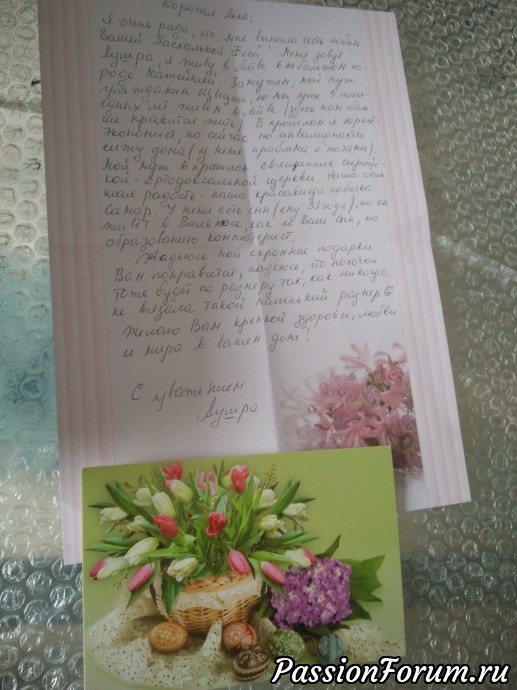 Дорогая Анна,
Я очень рада, что мне выпала честь побыть
Вашей Пасхальной Феей! Меня зовут
Аушра, я живу в Литве в небольшом го-
роде Мажейкяй. Замужем, мой муж
гражданин Швеции, но мы уже 5 послед-
них лет живем в Литве (здесь нам боль-
ше нравится жить). В прошлом я юрист-
экономист, но сейчас по инвалидности
сижу дома (у меня проблема с ногами).
Мой муж в прошлом священник сирийс-
кой-Ортодоксальной церкви. Наша боль-
шая радость - наша красавица собака
Самар. У меня есть сын (ему 33 года), но он
живет в Вильнюсе, как и Ваш сын, по
образованию компютерист.
Надеюсь мои скромние подарки
Вам понравится, надеюсь, что носочки
тоже будет по размеру так, как никогда
не вязала такой маленький размер
Желаю Вам крепкой здоровьи, любви
и мира в вашем доме!
С уважением
Аушра
PassionForum.ru